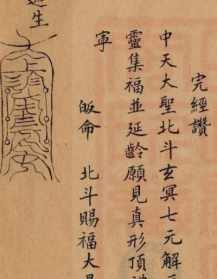 完經讚
中天大聖北斗玄冥七元解
靈集福並延齡願見真形頂
寧
皈命 北斗賜福大
生